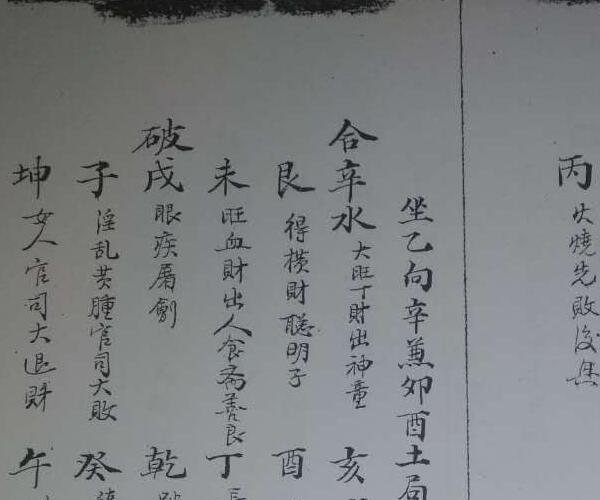 丙 火燒先敗後無
坐乙向辛兼卯酉土局
合辛水 大旺丁財出神童 亥
艮 得横財聪明子 酉
未 旺血財出人食斋善良 丁
破戌 眼疾屠劊 乾
子 淫乱黄腫官司大敗 癸
坤 女人官司大退財 午